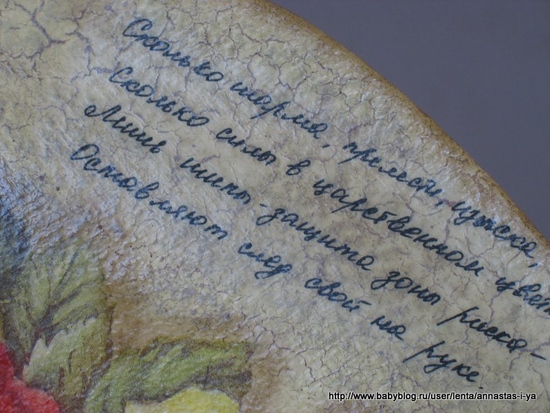 Сколько шарма, прелести, изыска,
Сколько силы в царственном цвет
Лишь шипы-защита зоны риска-
Оставляют след свой на руке.
http://www.babyblog.ru/user/lenta/annastas-i-ya